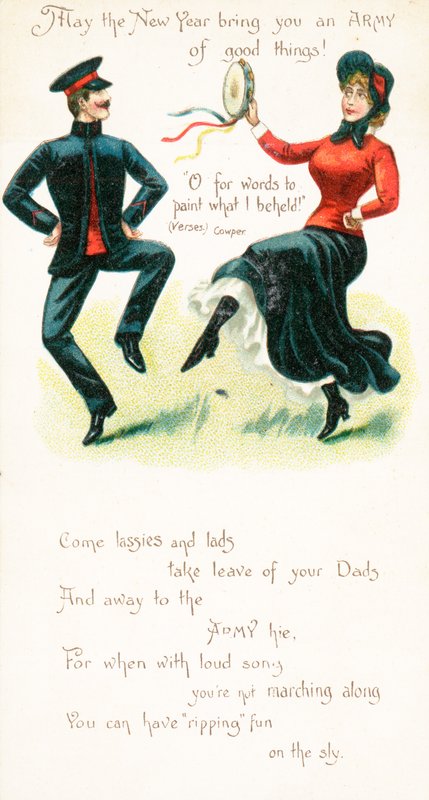 May the New Year bring you an ARMY
of good things!
"O for words to
paint what I beheld!"
(Verses.) Cowper.
Come lassies and lads
take leave of your Dads
And away to the
ARMY hie,
For when with loud song
you're not marching along
You can have "ripping" fun
on the sly.